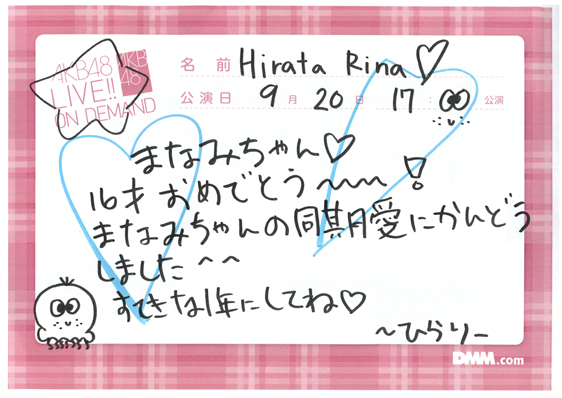 AKB48
LIVE!!
ON DEMAND
AKB
48
名 前 Hirata Rina♡
公演日 9 月 20 日 17 : 公演
まなみちゃん♡
16才 おめでとう〜〜 !
まなみちゃんの同期愛にかんどう
しました^^
すてきな1年にしてね♡
〜ひらりー
DMM.com